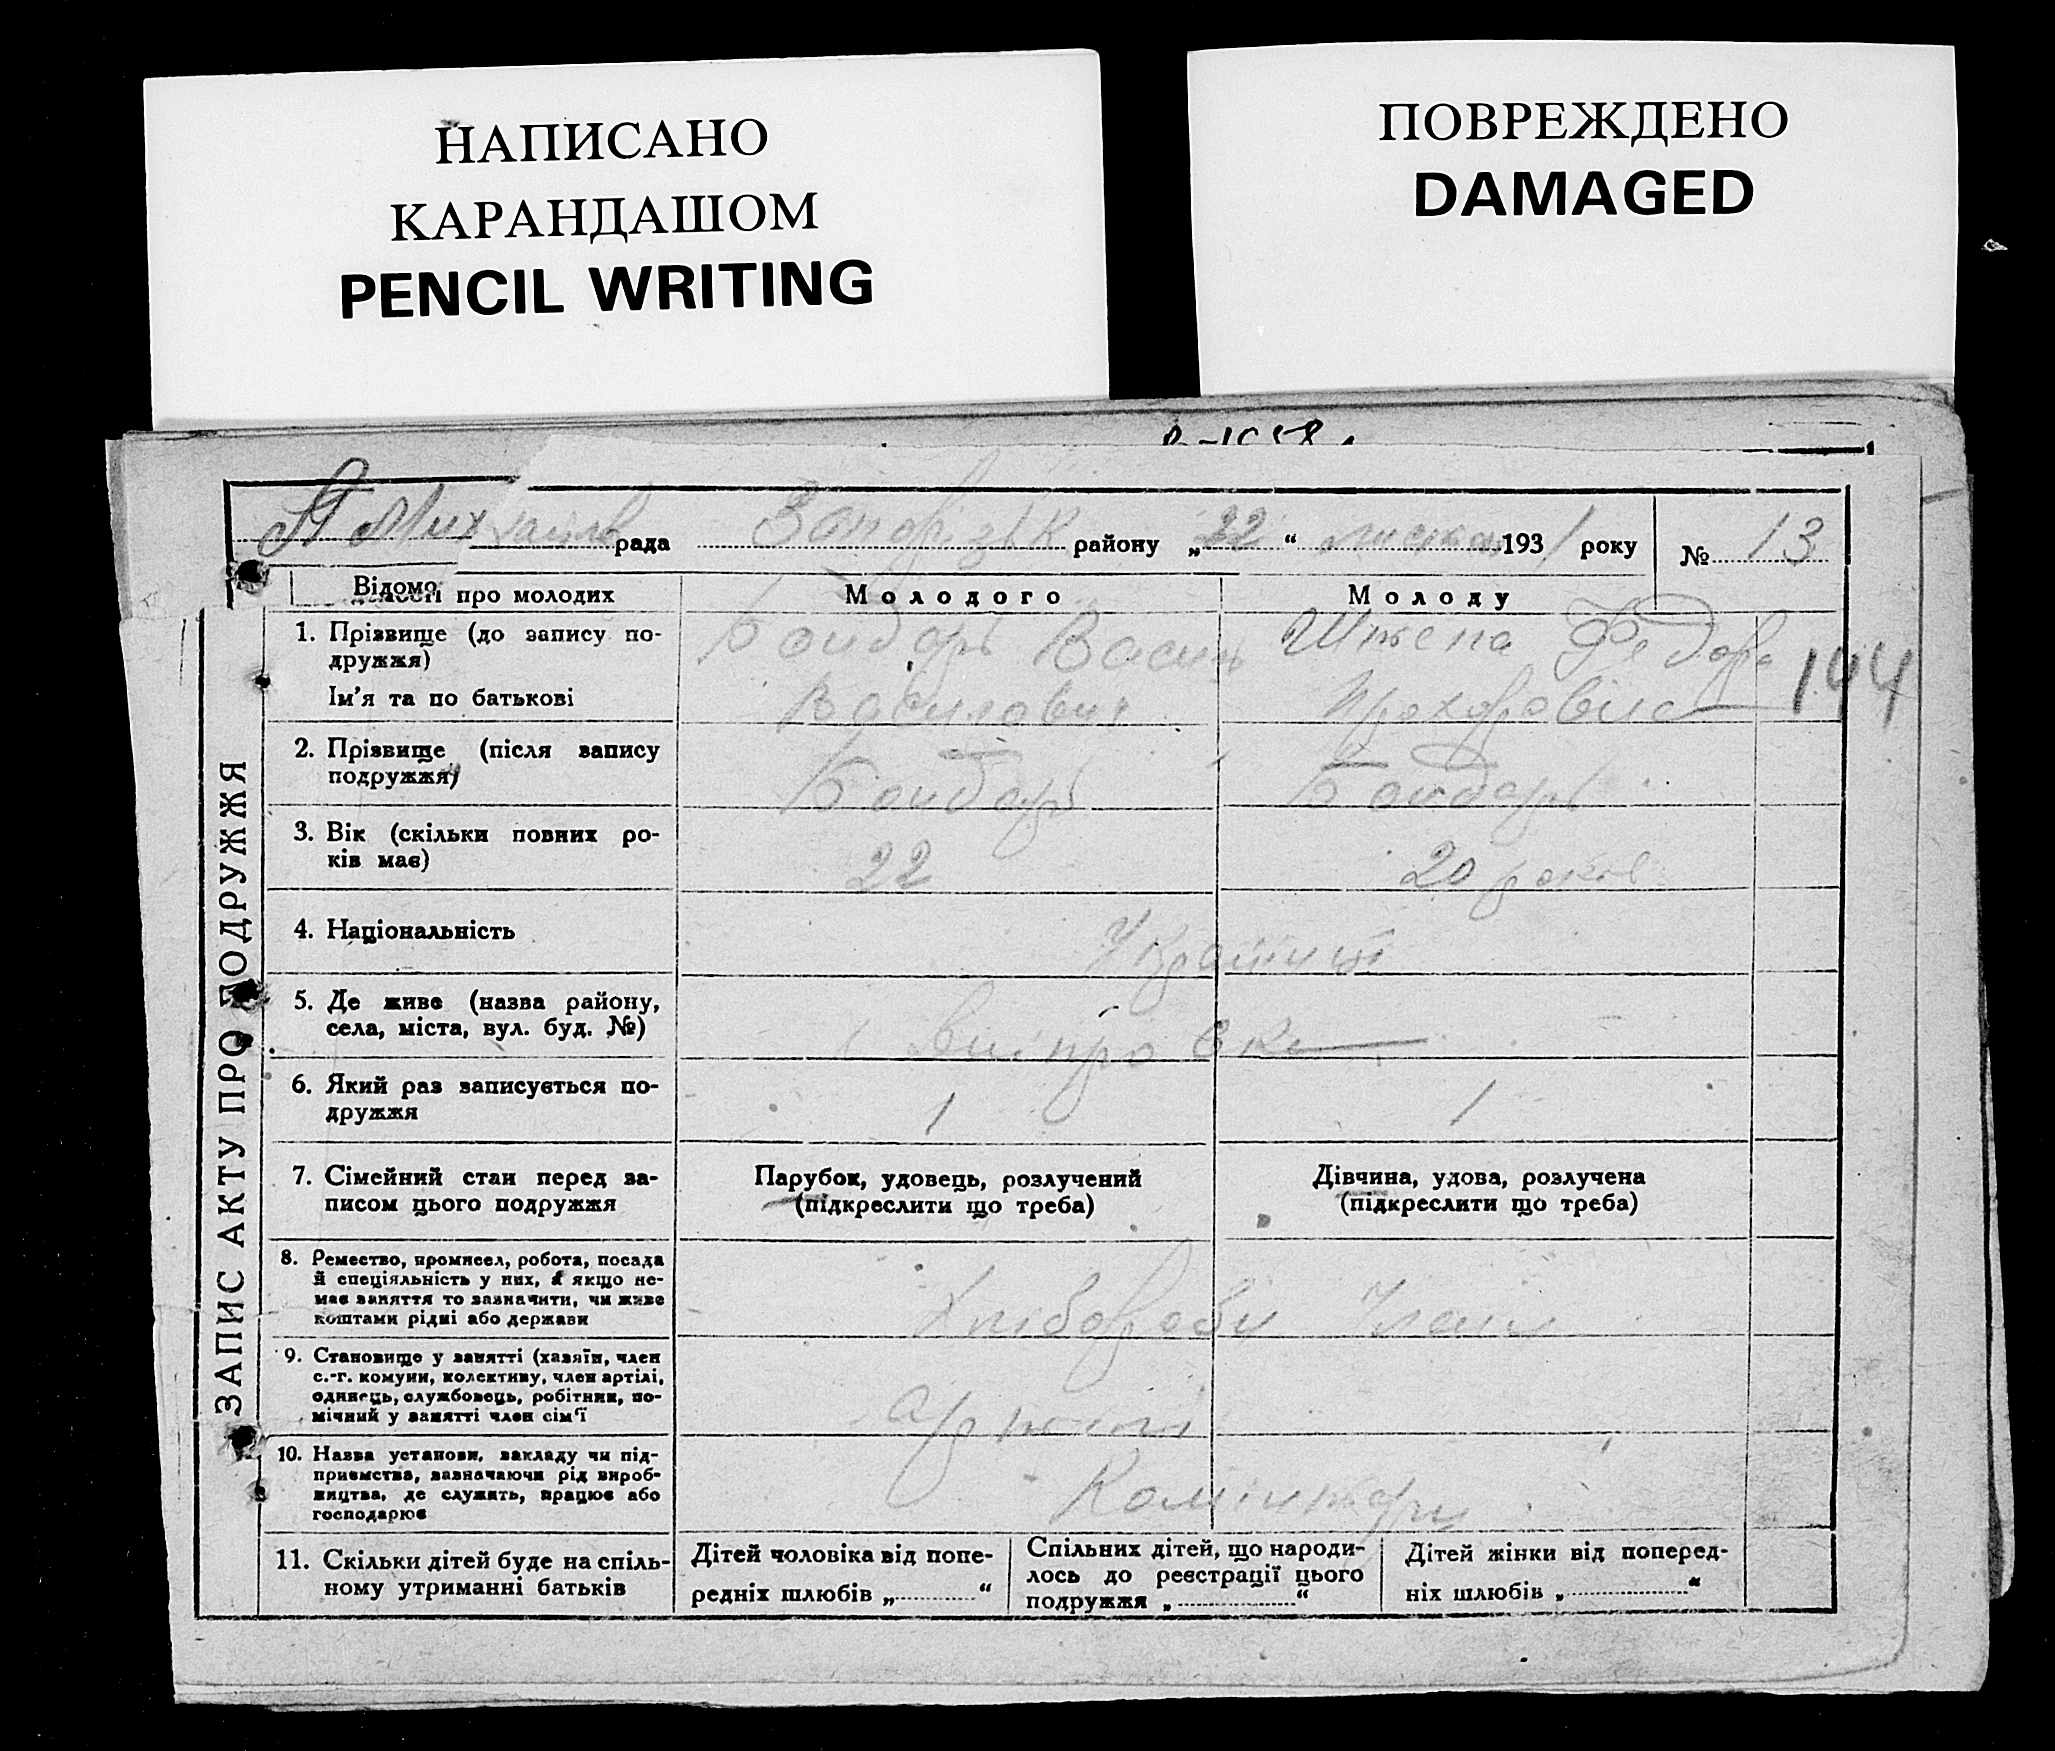 НАПИСАНО
КАРАНДАШОМ
PENCIL WRITING
ПОВРЕЖДЕНО
DAMAGED
рада Запоріжк району „22“ 1931 року № 13
Відомо про молодих
Молодого
Молоду
ЗАПИС АКТУ ПРО ПОДРУЖЖЯ
1. Прізвище (до запису по-
дружжя)
Ім'я та по батькові
Бондарь Василь
Василович
Федора
Прохоровна
144
2. Прізвище (після запису
подружжя)
Бондарь
Бондарь
3. Вік (скільки повних ро-
ків має)
22
20 років
4. Національність
Українці
5. Де живе (назва району,
села, міста, вул. буд. №)
6. Який раз записується по-
дружжя
1
1
7. Сімейний стан перед за-
писом цього подружжя
Парубок, удовець, розлучений
(підкреслити що треба)
Дівчина, удова, розлучена
(підкреслити що треба)
8. Ремество, промисел, робота, посада
й спеціяльність у них, а якщо не-
має заняття то зазначити, чи живе
коштами рідні або держави
Хлібороби
9. Становище у занятті (хазяїн, член
с.-г. комуни, колективу, член артілі,
одинець, службовець, робітник, по-
мічний у занятті член сім'ї
артілі
10. Назва установи, закладу чи під-
приємства, зазначаючи рід вироб-
ництва, де служить, працює або
господарює
Комінтерн
11. Скільки дітей буде на спіль-
ному утриманні батьків
Дітей чоловіка від попе-
редніх шлюбів „ “
Спільних дітей, що народи-
лось до реєстрації цього
подружжя „ “
Дітей жінки від поперед-
ніх шлюбів „ “